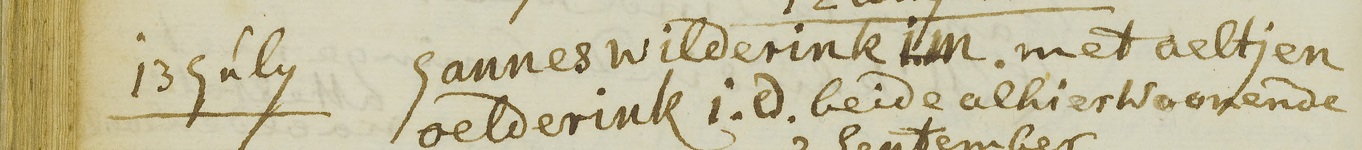 13 July Jannes wilderink i.m. met aeltjen
oelderink j.d. beide alhier Woonende
2 September